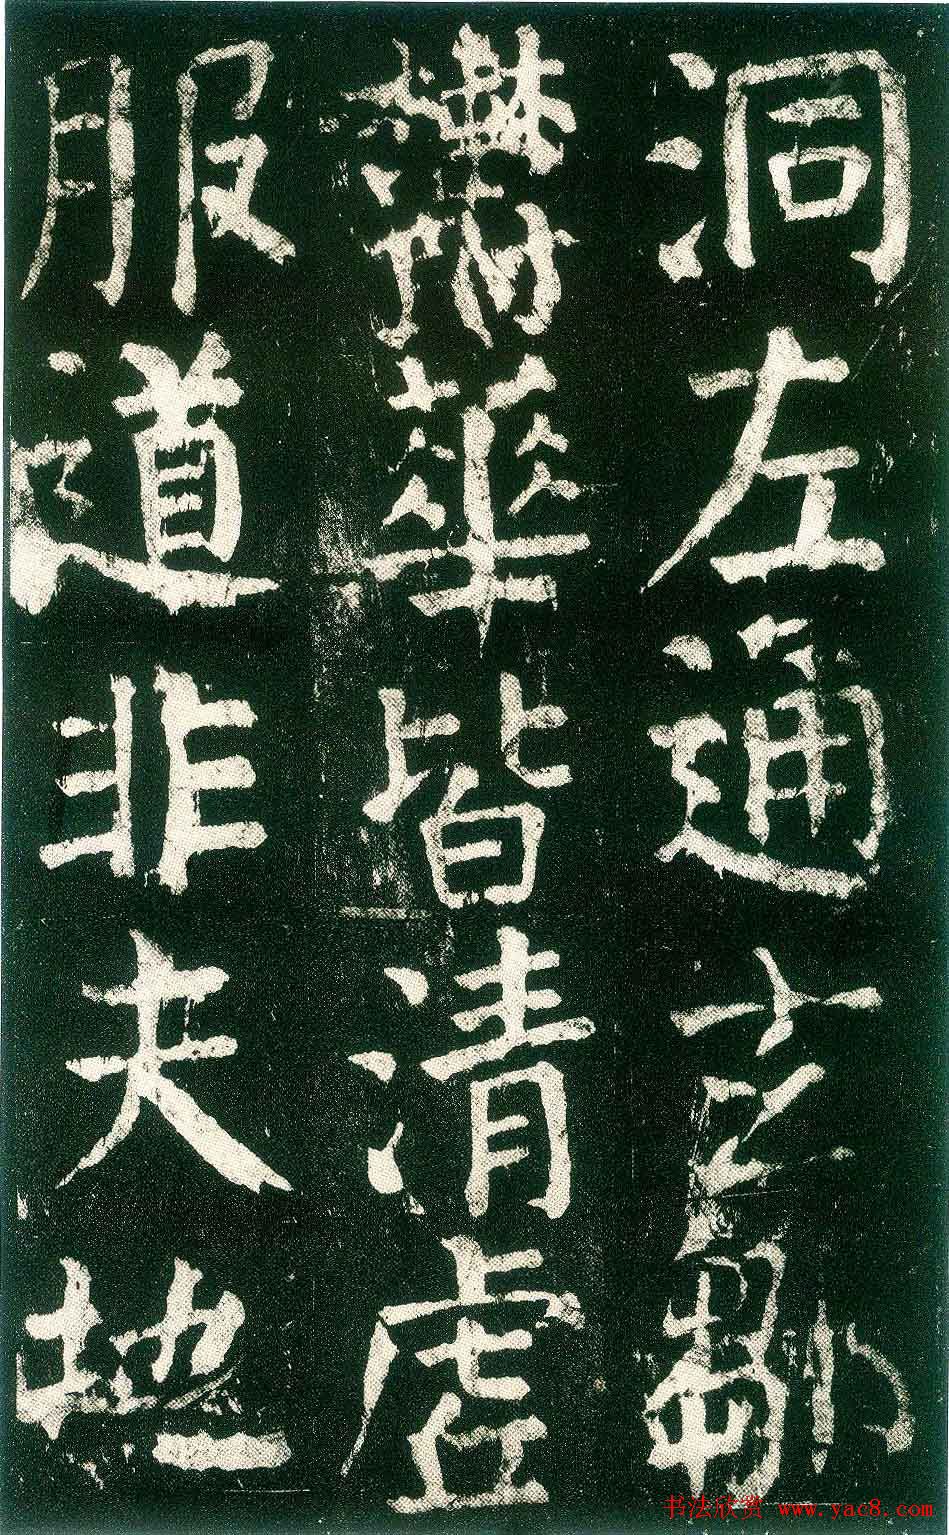 洞左通玄鄒
滿華皆清虛
服道非夫地
书法欣赏 www.yac8.com